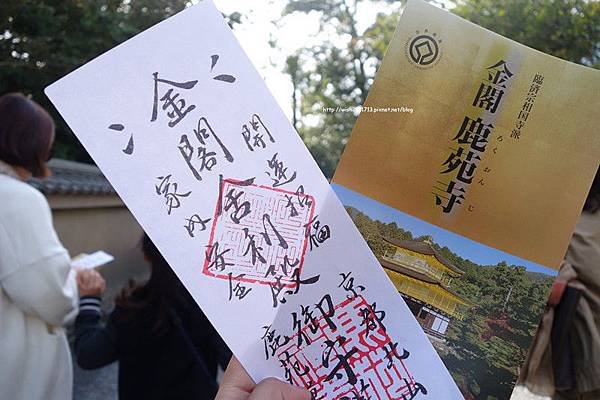 開運招福
金閣
舎利殿
御守
家内安全
京都北山
鹿苑
臨済宗相国寺派
金閣 鹿苑寺
ろくおんじ